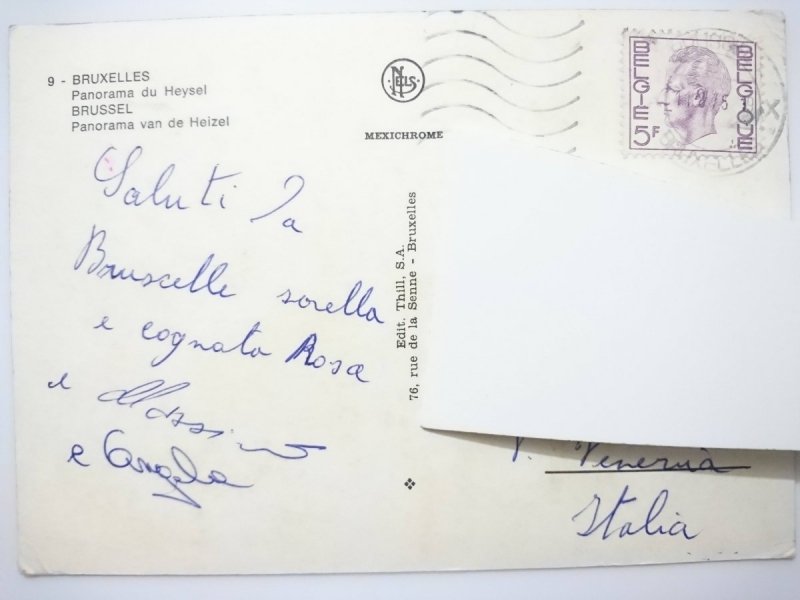 9 - BRUXELLES
Panorama du Heysel
BRUSSEL
Panorama van de Heizel
NELS
MEXICHROME
BELGIE
BELGIQUE
5F
Edit. Thill, S.A.
76, rue de la Senne - Bruxelles
Saluti Da
Bruscelle sorella
e cognato Rosa
e Massimo
e Cangela
Italia